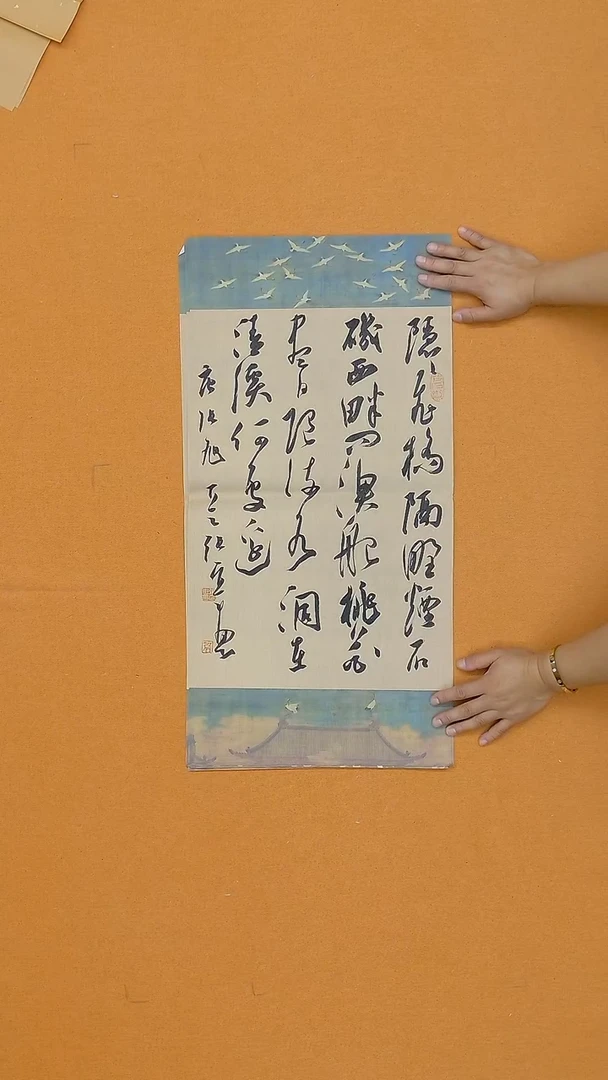 隱隱飛橋隔野煙石
磯西畔問漁船桃花
盡日隨流水洞在
清溪何處邊
唐張旭